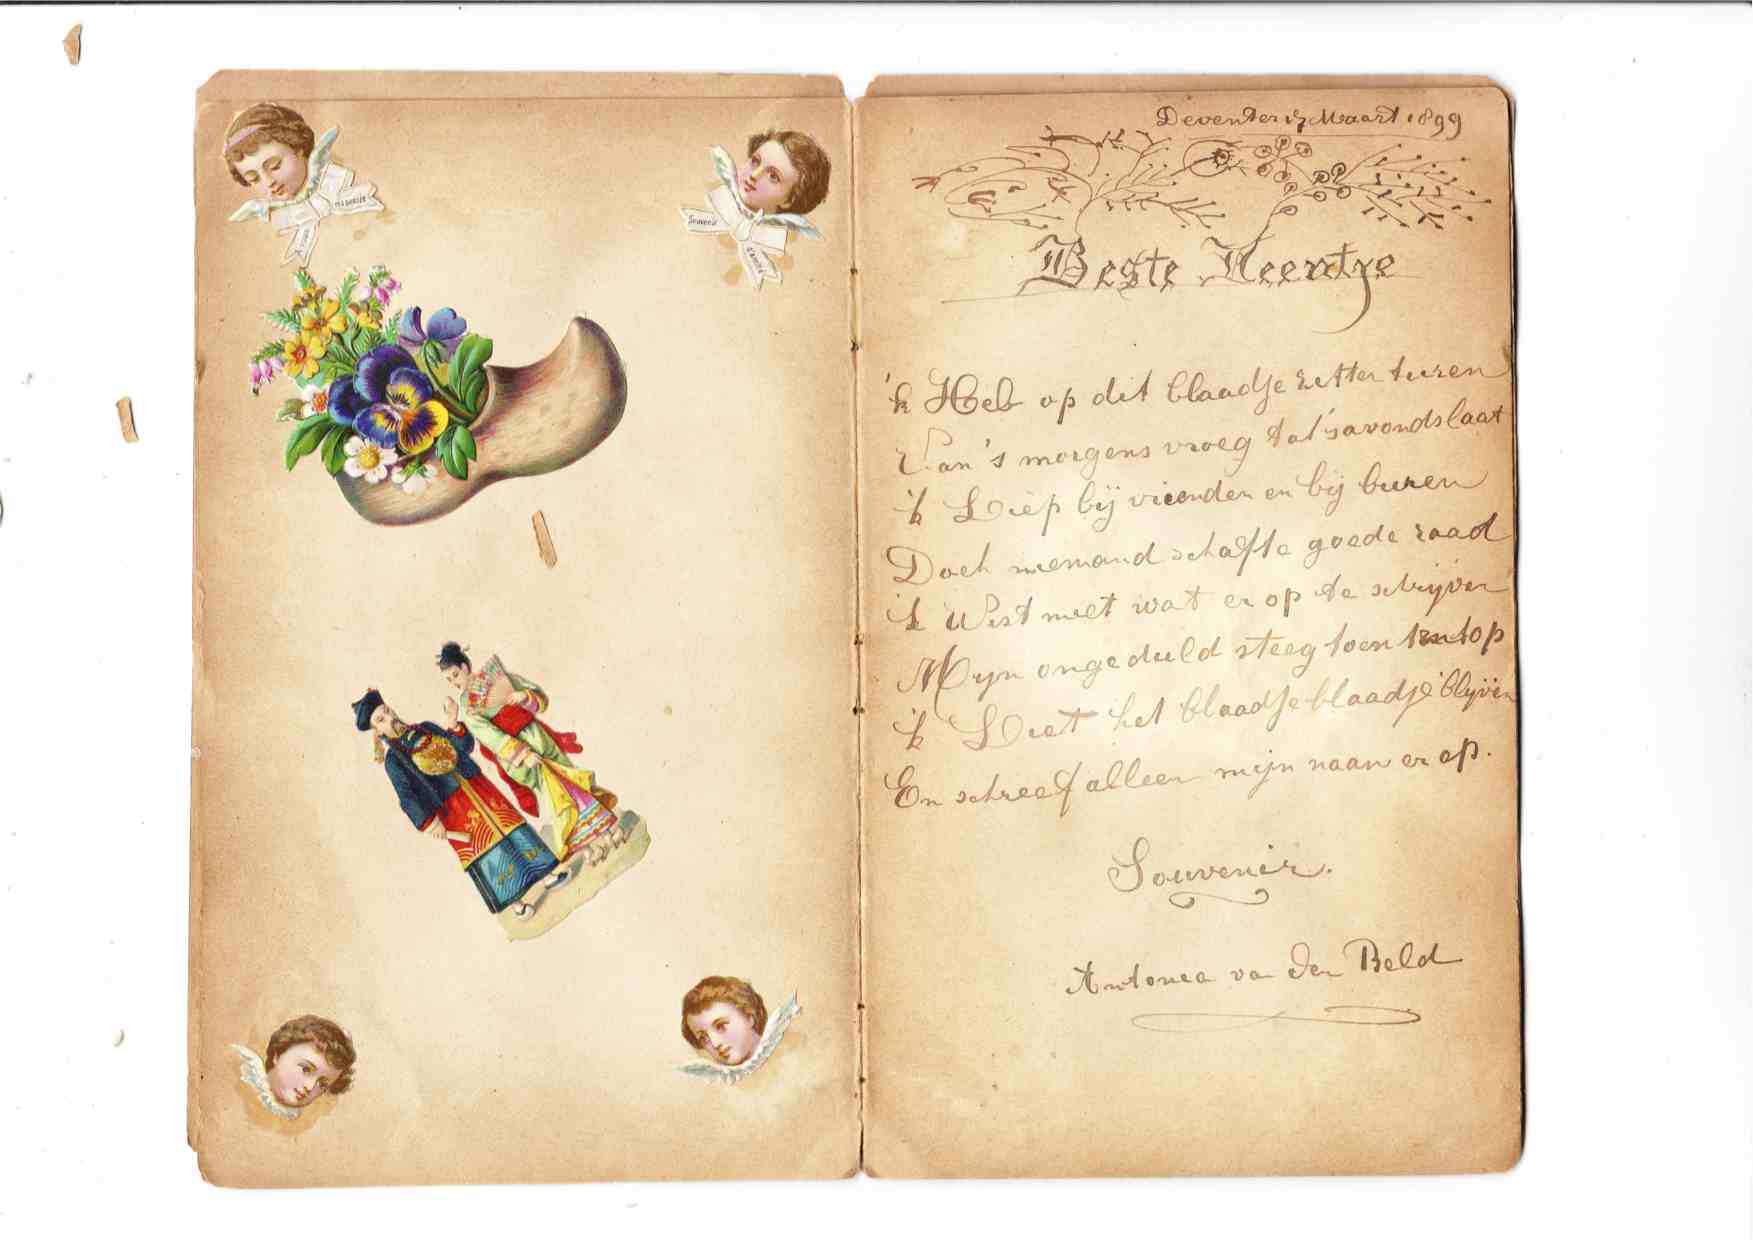 ma pensée
Souvenir
d'amitié
Deventer 17 Maart 1899
Beste Neentje
'k Heb op dit blaadje zitten turen
Van 's morgens vroeg tot 's avonds laat
'k Liep bij vrienden en bij buren
Doch niemand schafte goede raad
'k Wist niet wat er op te schrijven
Mijn ongeduld steeg toen ten top
'k Liet het blaadje blaadje blijven
En schreef alleen mijn naam er op.
Souvenir.
Antonea van den Beld